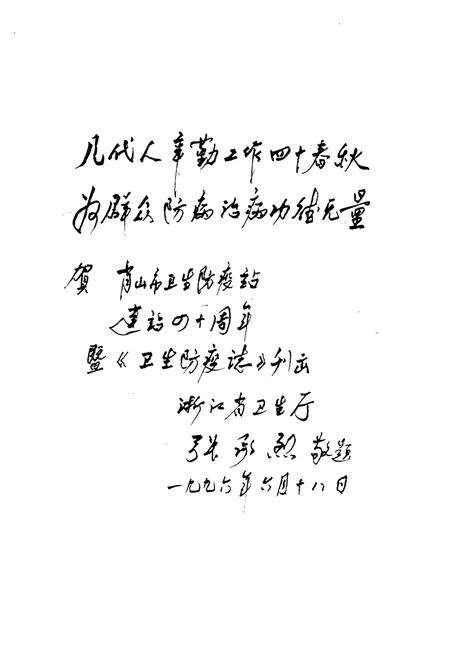 几代人辛勤工作四十春秋
为群众防病治病功德无量
贺 肖山市卫生防疫站
建站四十周年
暨《卫生防疫志》刊出
浙江省卫生厅
张承烈 敬题
一九九六年六月十八日